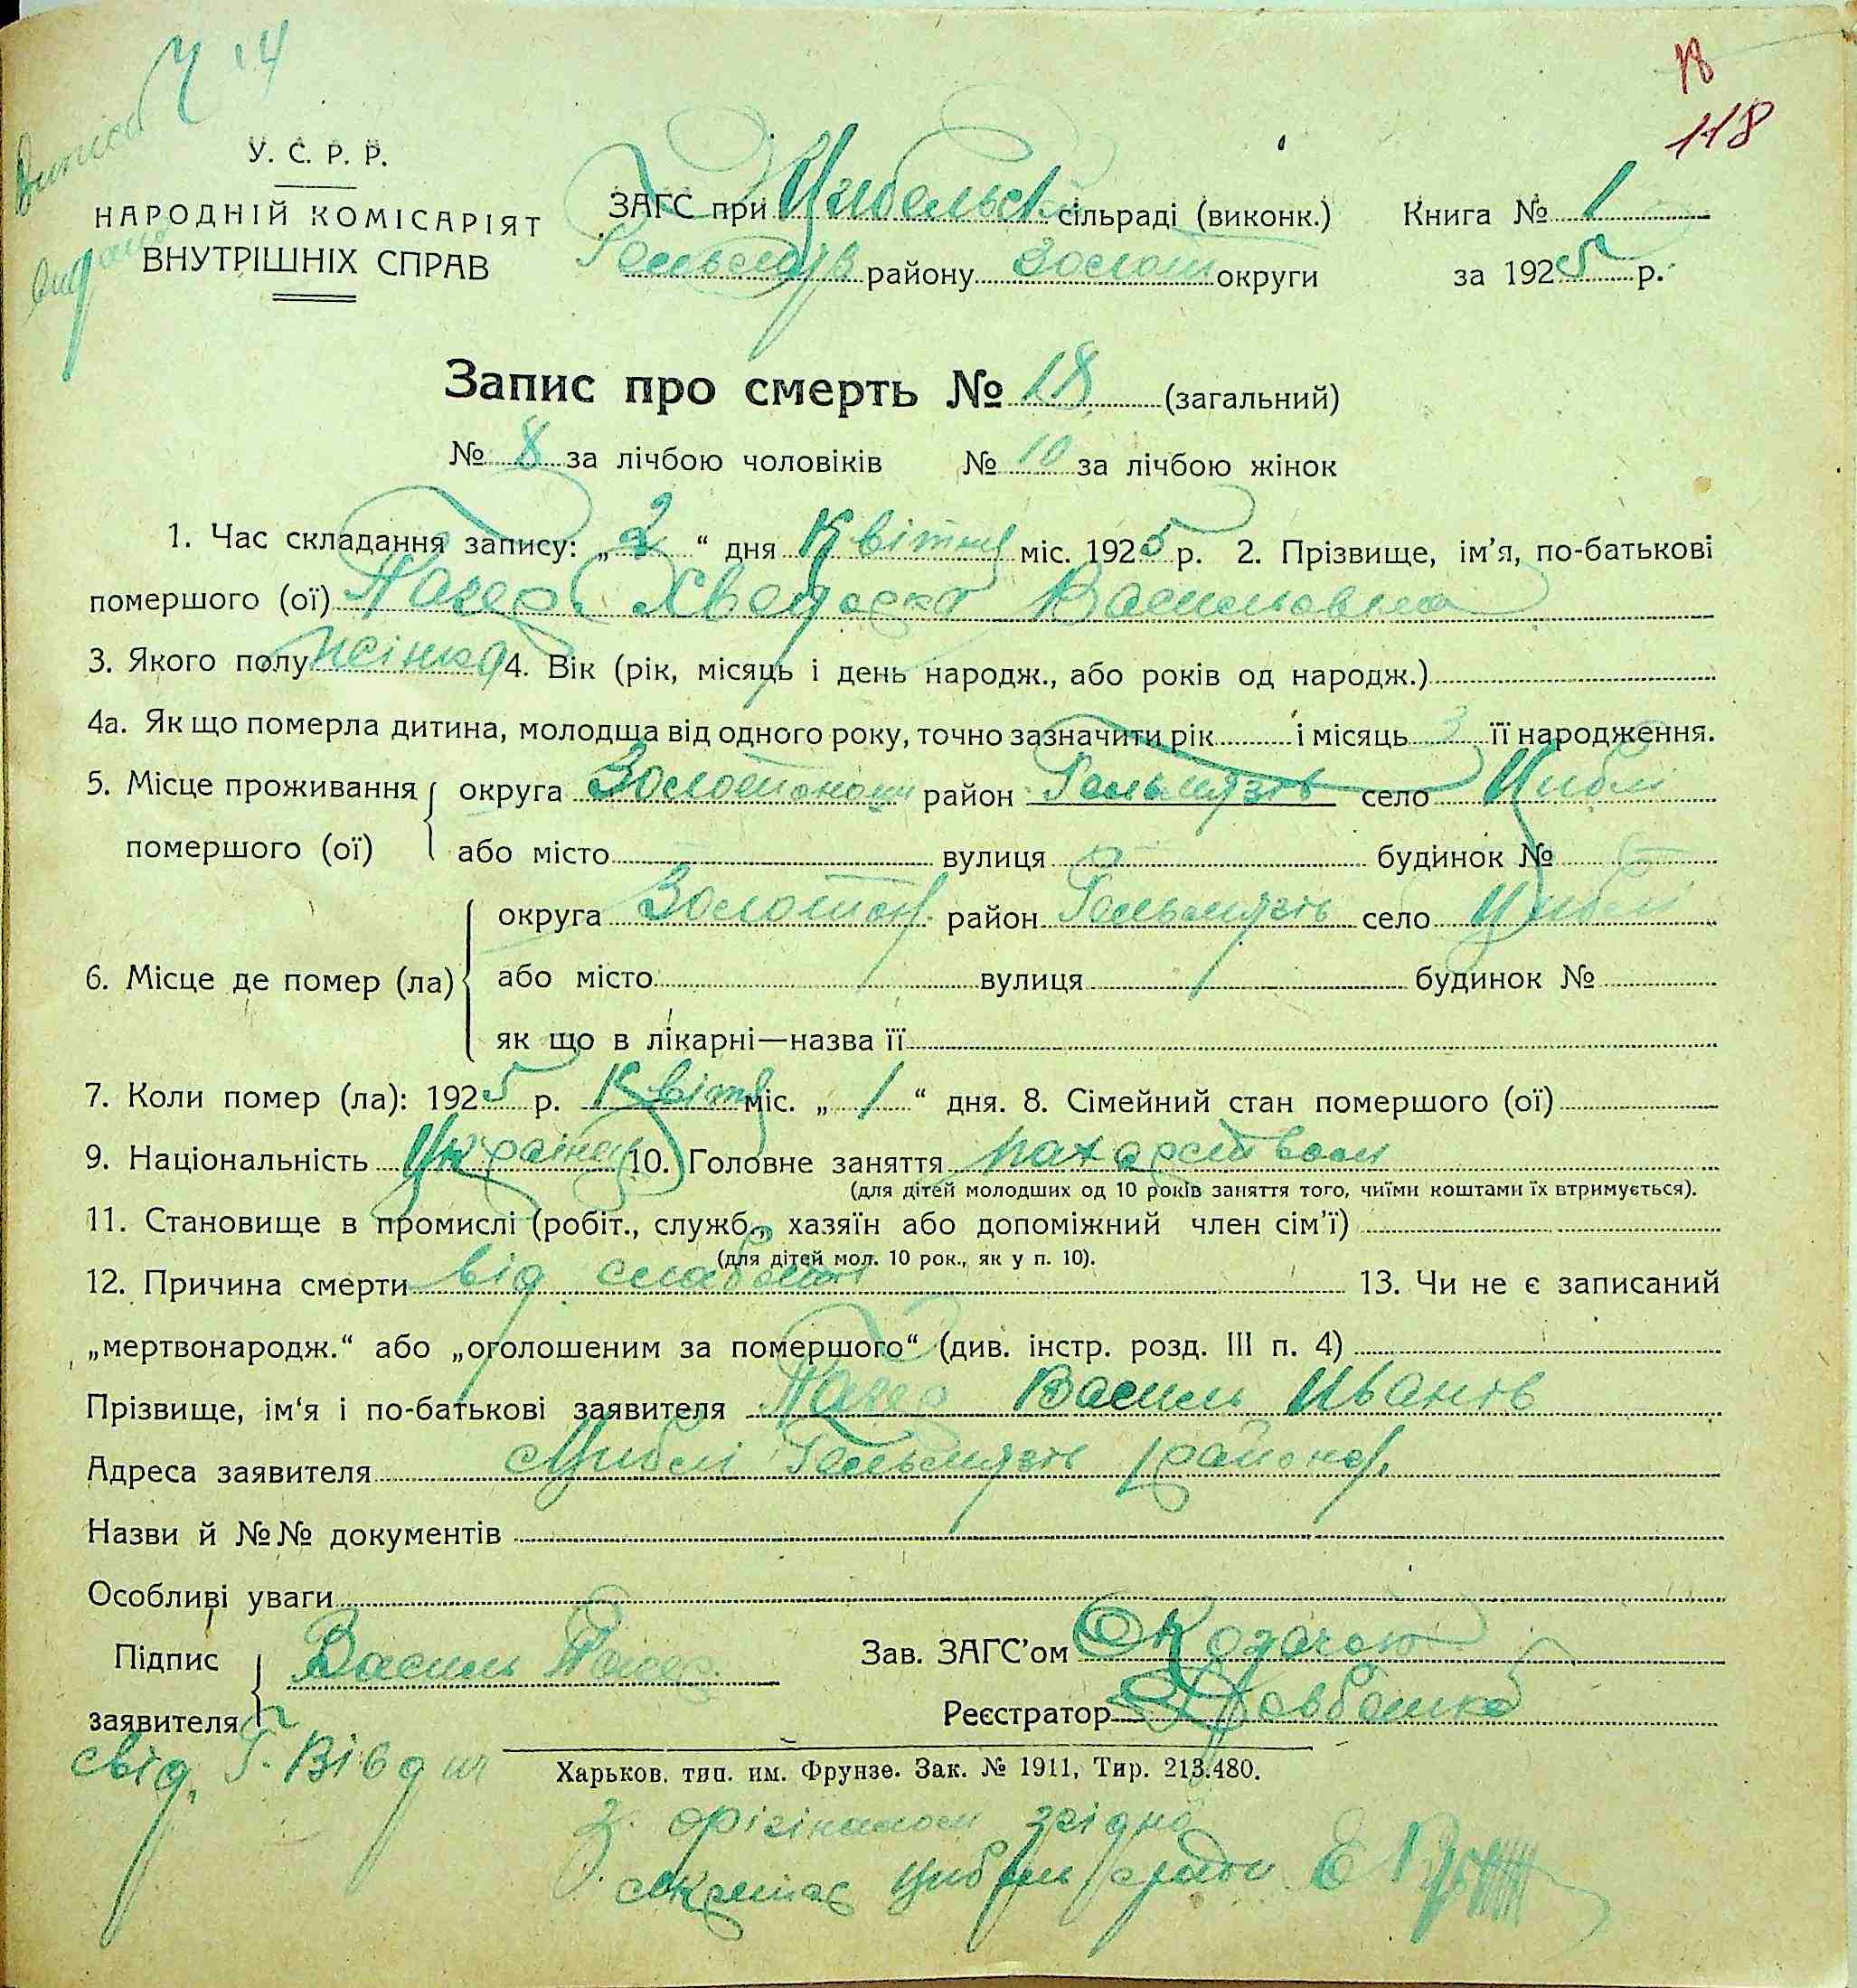 Ч 14
18
118
У. С. Р. Р.
НАРОДНІЙ КОМІСАРІЯТ
ВНУТРІШНІХ СПРАВ
ЗАГС при Цибельск. сільраді (виконк.) Книга № 1
Гельмязів району Золот округи за 1925 р.
Запис про смерть № 18 (загальний)
№ 8 за лічбою чоловіків № 10 за лічбою жінок
1. Час складання запису: „2“ дня Квітня міс. 1925 р. 2. Прізвище, ім’я, по-батькові
помершого (ої) Хведорка Васильовна
3. Якого полу жінка 4. Вік (рік, місяць і день народж., або років од народж.)
4а. Як що померла дитина, молодша від одного року, точно зазначити рік і місяць 3 її народження.
5. Місце проживання помершого (ої) округа Золотоноши район Гельмязів село Циблі
або місто вулиця будинок №
6. Місце де помер (ла) округа Золотон. район Гельмязів село Циблі
або місто вулиця будинок №
як що в лікарні—назва її
7. Коли помер (ла): 1925 р. Квітня міс. „1“ дня. 8. Сімейний стан помершого (ої)
9. Національність Україн 10. Головне заняття
(для дітей молодших од 10 років заняття того, чиїми коштами їх втримується).
11. Становище в промислі (робіт., служб., хазяїн або допоміжний член сім’ї)
(для дітей мол. 10 рок., як у п. 10).
12. Причина смерти від слабости 13. Чи не є записаний
„мертвонародж.“ або „оголошеним за помершого“ (див. інстр. розд. III п. 4)
Прізвище, ім‘я і по-батькові заявителя Василь Иванів
Адреса заявителя с Циблі Гельмязів району
Назви й №№ документів
Особливі уваги
Підпис заявителя Василь
Зав. ЗАГС’ом
Реєстратор Довбошко
свід. Г. Вівдич
Харьков. тип. им. Фрунзе. Зак. № 1911, Тир. 213.480.
З орігіналом згідно
секретар